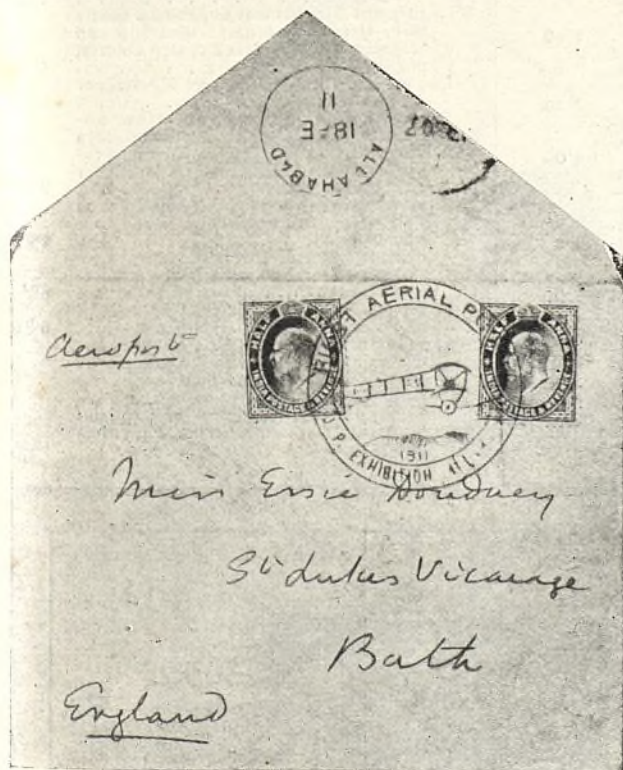 ALLAHABAD
18 FE
11
FIRST AERIAL P
1911
U P EXHIBITION ALL
HALF ANNA
INDIA POSTAGE & REVENUE
HALF ANNA
INDIA POSTAGE & REVENUE
Aeropost
Miss Essie Doudney
St Lukes Vicarage
Bath
England